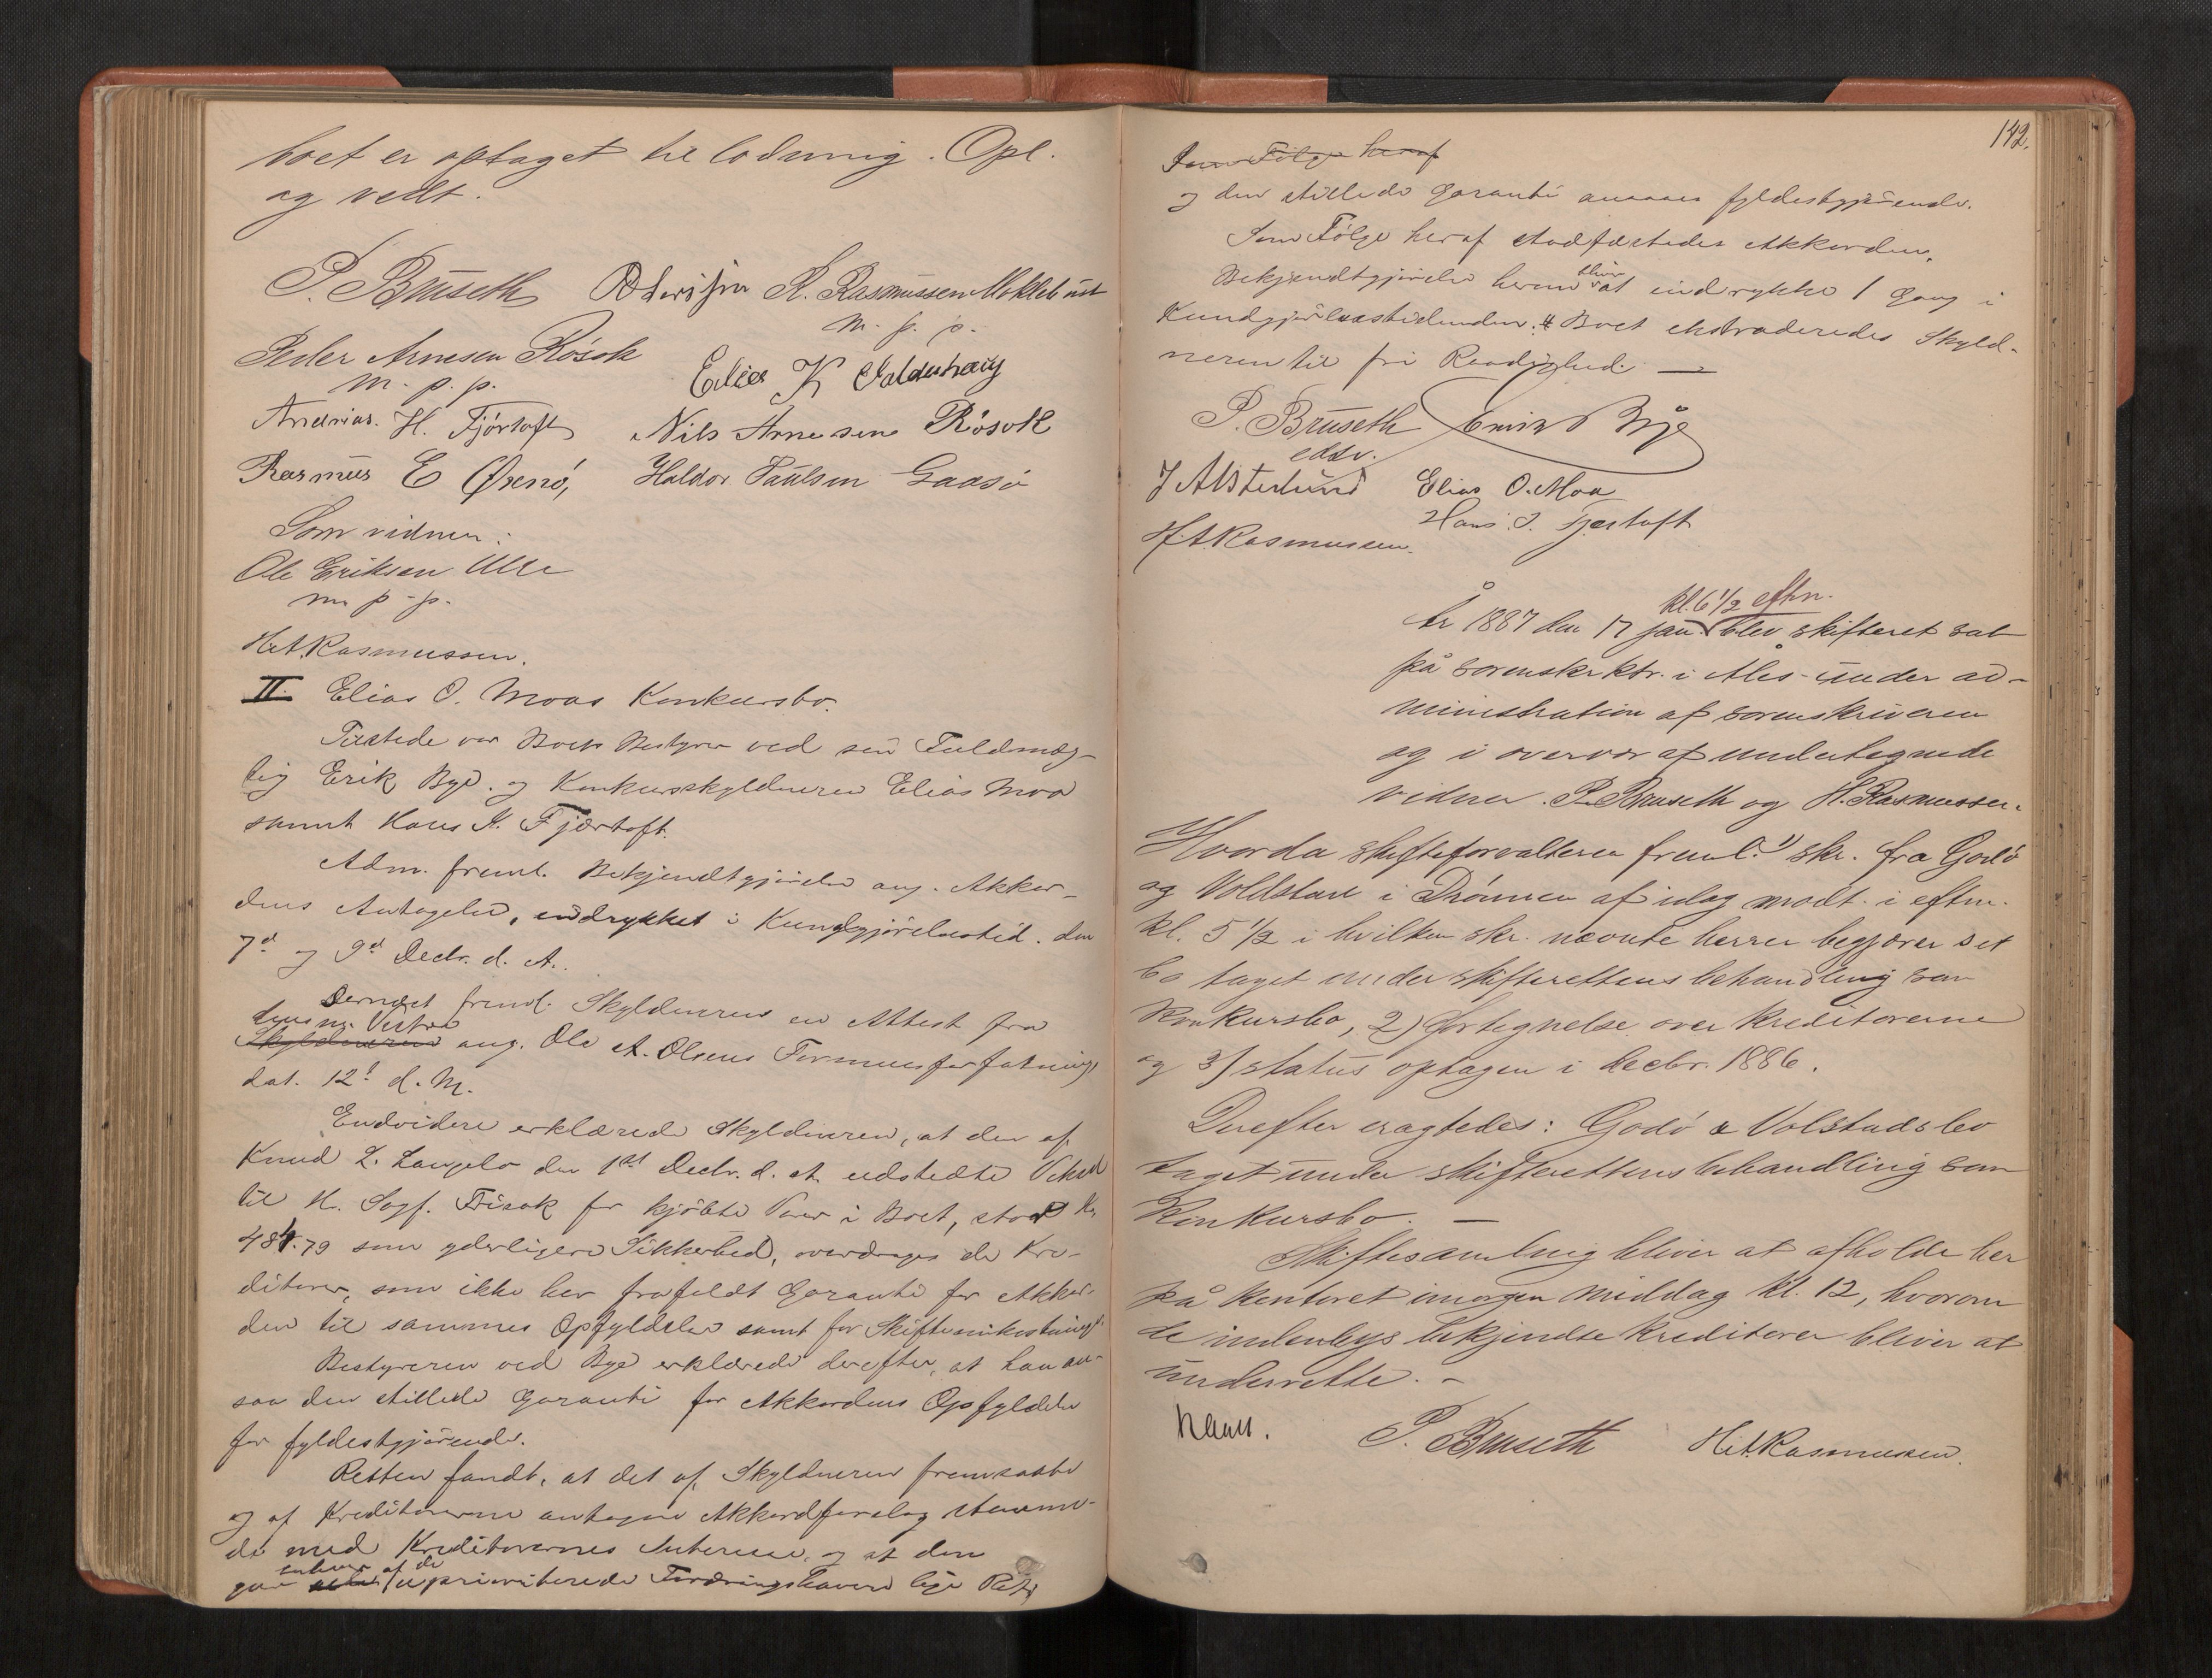 boet er optaget til lodning. Opl.
og vedt.
P. Brüseth R. Rasmussen Mokleb ust
m. p. p.
Peder Arnesen Rösok
m. p. p.
Elias K
Andrias. H. Fjörtoft Nils Arnesen Rösok
Rasmus E Oxnö, Haldor Paulsen Gaasö
Som vidner:
Ole Eriksen Ulla
m. p. p.
H.A.Rasmussen.
II. Elias O. Moas Konkursbo.
Tilstede var Boets Bestyrer ved sin Fuldmæg-
tig Erik Bye. og Konkursskyldneren Elias Moa
samt Hans I. Fjærtoft.
Adm. freml. Bekjendtgjörelse ang. Akkor-
dens Antagelse, indrykket i Kundgjörelsestid. den
7d og 9d Decbr. d. A.
Dernæst freml. Skyldneren en Attest fra
Skyldneren ang. Ole A. Olsens Formuesforfatning,
dat. 12t d. M.
Endvidere erklærede Skyldneren, at den af
Knud L. Langelo den 1st Decbr. d. A. udstedte Vexel
til H. Sagf. Frisak for kjöbte Varer i Boet, stor Kr
484.79 som yderligere Sikkerhed, overdrages de Kre-
ditorer, som ikke har frafaldt Garanti for Akkor-
den til sammes Opfyldelse samt for Skifteomkostning.
Bestyreren ved Bye erklærede derefter, at han an-
saa den stillede Garanti for Akkordens Opfyldelse
for fyldestgjörende.
Retten fandt, at det af Skyldneren fremsatte
og af Kreditorerne antagne Akkordforslag stemme-
de med Kreditorernes Interesse, og at den
enhver af de
gav uprioriterede Fordringshavere lige Ret,
142.
Som Fölge heraf
og den stillede Garanti ansaaes fyldestgjörende.
Som Fölge heraf stadfæstedes Akkorden.
bliver
Bekjendtgjörelse herom at indrykke 1 Gang i
Kundgjörelsestidenden. Boet extraderedes Skyld-
neren til fri Raadighed. —
P. Brüseth
edsv.
J Alsterlund Elias O. Moa
Hans I. Fjærtoft
H.A.Rasmussen.
kl. 6 1/2 eftm.
År 1887 den 17 jan. blev skifteret sat
på sorenskr.ktr. i Ales- under ad-
ministration af sorenskriveren
og i overvær af undertegnede
vidner P. Bruseth og H. Rasmussen.
Hvorda skifteforvalteren freml. 1) skr. fra Godö
og Voldstad i Drönnen af idag modt. i eftm.
kl. 5 1/2 i hvilken skr. nævnte herrer begjærer sit
bo taget under skifterettens behandling som
konkursbo, 2) Fortegnelse over kreditorerne
og 3) status optagen i decbr. 1886.
Derefter eragtedes: Godö & Volstads bo
taget under skifterettens behandling som
Konkursbo. —
Skiftesamling bliver at afholde her
på kontoret imorgen middag kl. 12, hvorom
de indenbys bekjendte kreditorer bliver at
underrette. -
P. Bruseth H.A.Rasmussen.